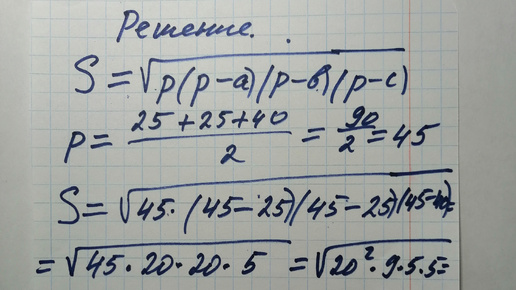 Решение.
S = √p(p-a)(p-в)(p-c)
p = (25+25+40)/2 = 90/2 = 45
S = √45·(45-25)(45-25)(45-40) =
= √45·20·20·5 = √20²·9·5·5 =